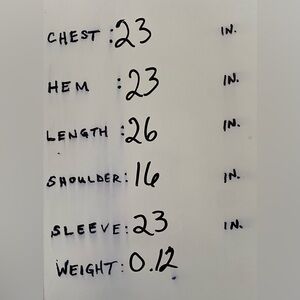 CHEST : 23 IN.
HEM : 23 IN.
LENGTH : 26 IN.
SHOULDER : 16 IN.
SLEEVE : 23 IN.
WEIGHT : 0.12